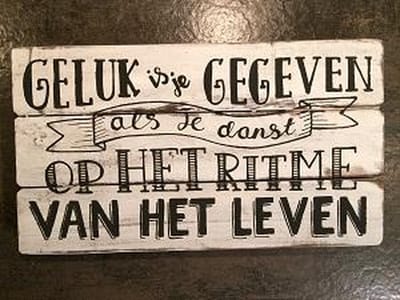 GELUK is je GEGEVEN
als je danst
OP HET RITME
VAN HET LEVEN